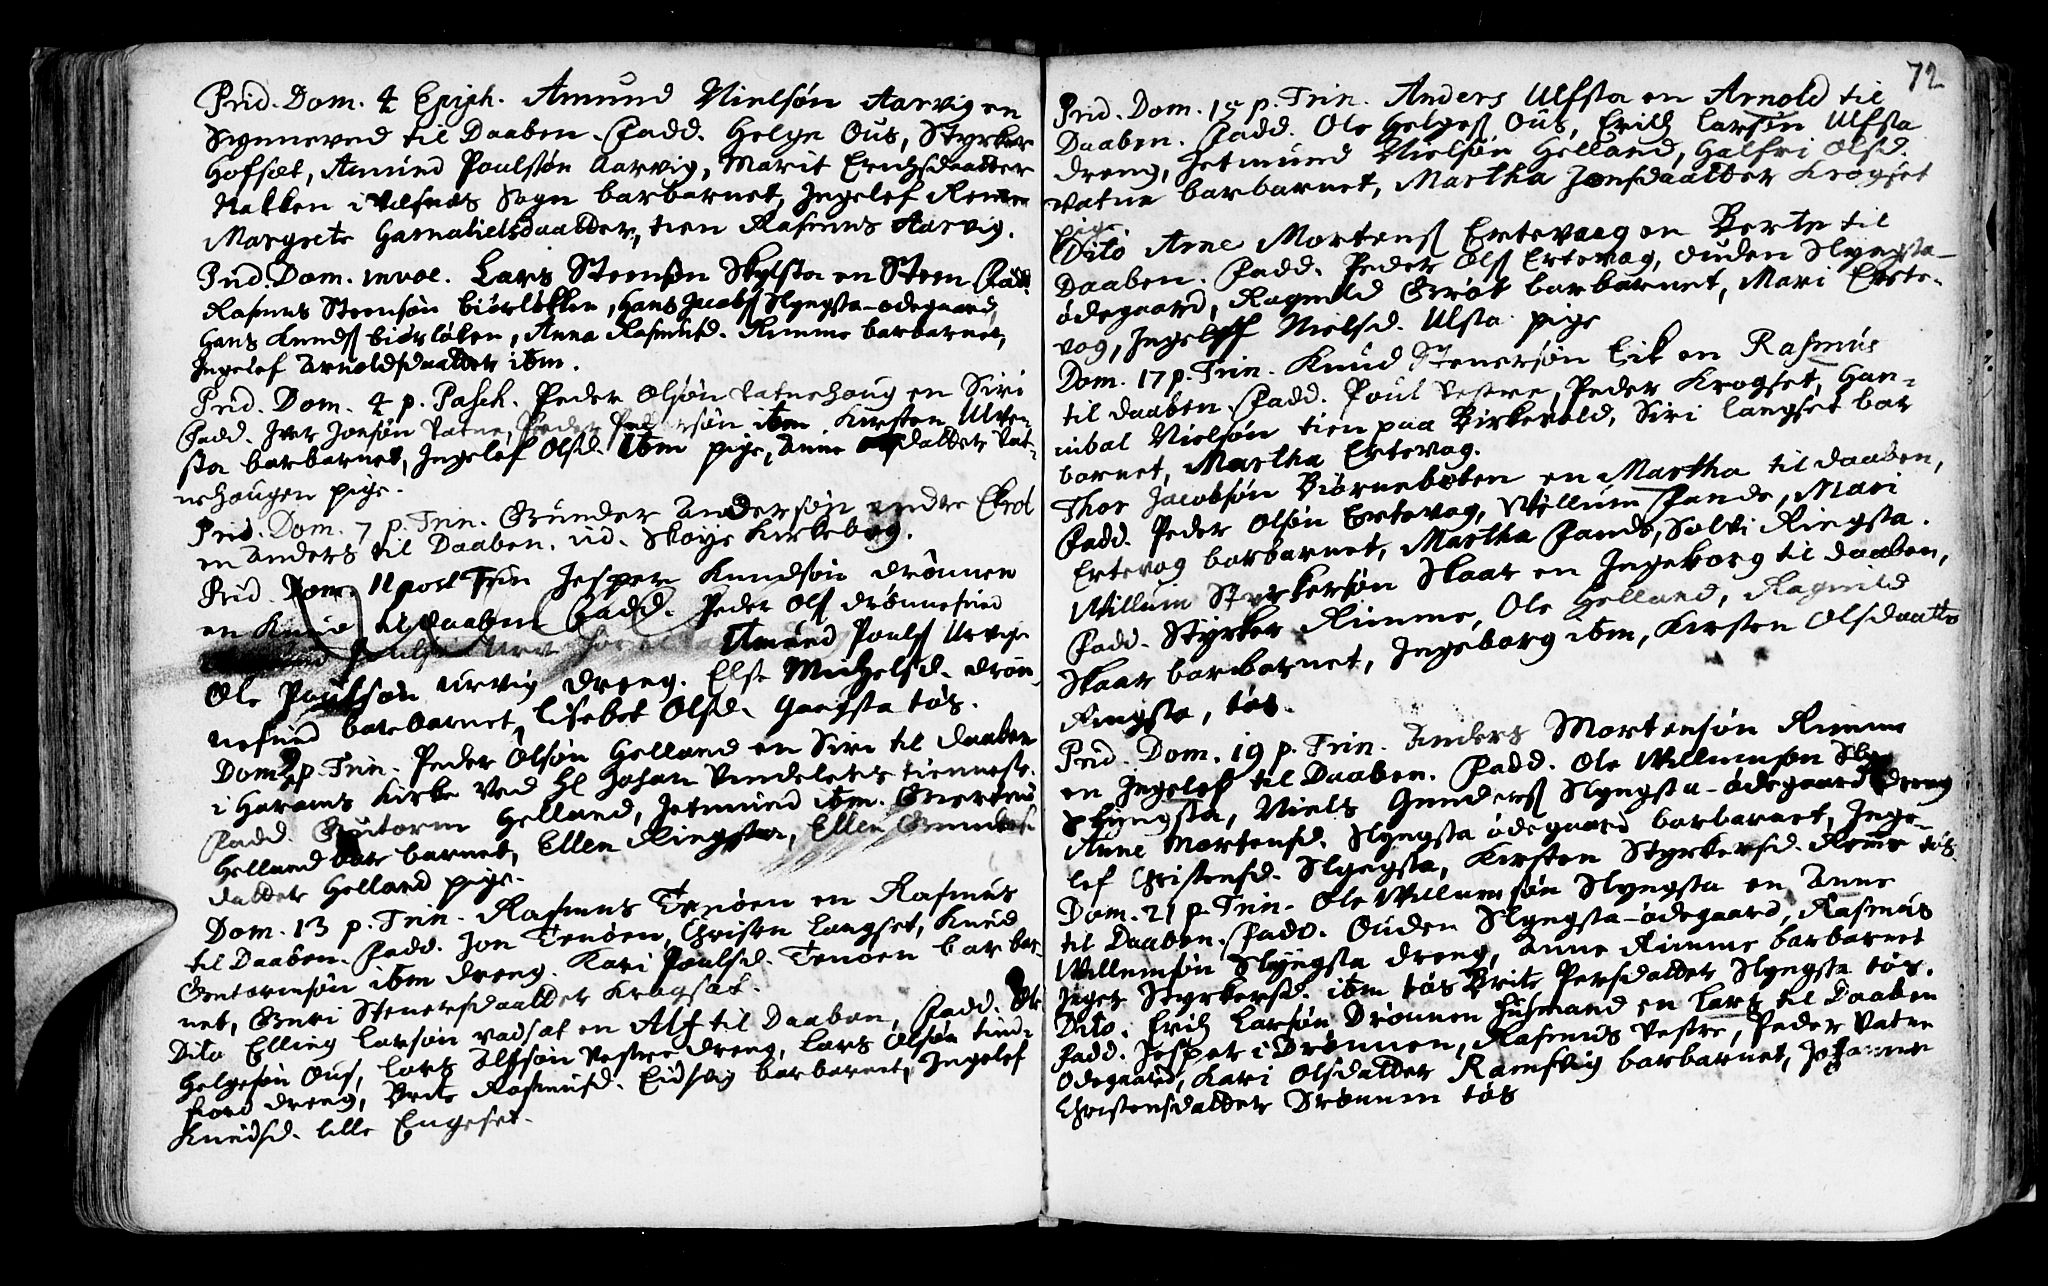 Prid. Dom. 4 Epiph. Amund Nielsøn Aarvig en
Synneved til Daaben. Fadd. Helge Ous, Styrker
Hofset, Amund Poulsøn Aarvig, Marit Erichsdaatter
Nakken i Ulfnes Sogn barbarnet, Ingelef
Margrete Gamalielsdaatter, tien Rasmus Aarvig.
Prid. Dom. invoc. Lars Steensøn Skylsta en Steen Fadd.
Rasmus Steensøn biørløkken, Hans Jacobs Slyngsta-ødegaard,
Hans Knuds biørløken, Anna Rasmusd. Rimme barbarnet,
Ingelef Arnoldsdaatter ibm.
Prid. Dom. 4 p. Pasch. Peder Olsøn Vatnehaug en Siri
Fadd. Iver Jonsøn Vatne, Peder ibm Kirsten Ulfsta
barbarnet, Ingelef Olsd. ibm pige, Anne daatter Vat-
nehaugen pige.
Prid. Dom. 7 p. Trin. Gunder Andersøn
en Anders til Daaben. vid. Skoye Kirkebog.
Prid. Dom. 11 post Trin Jesper Knudsøn drønnen
en Knud til daaben Fadd. Peder Ols drønnesund
Amund Pouls Urvig
Ole Poulsøn urvig dreng. Else Michelsd. drøn-
nesund barbarnet, lisebet Olsd. Gangsta tøs.
Dom. p. Trin. Peder Olsøn Helland en Siri til daaben
i Harams Kirke ved Hl Johan Vindelets tienneste.
Fadd. Gutorm Helland, Jetmund ibm.
Helland bar barnet, Ellen Ringsta, Ellen
daatter Helland pige.
Dom. 13 p. Trin. Rasmus Tenøen en Rasmus
til Daaben. Fadd. Jon Tenøen, Christen Langset, Knud
Gutormsøn ibm dreng. Kari Poulsd. Tenøen bar bar-
net, Guri Stenersdaatter Krogsæt.
Dito Elling Larsøn vadsæt en Alf til Daaben, Fadd. Ole
Helgesøn Ous, Lars Alfsøn Vestre dreng, Lars Olsøn tind-
fiord dreng, Brite Rasmusd. Eidsvig barbarnet, Ingelef
Knudsd. lille Engeset.
72
Prid. Dom. 15 p. Trin. Anders Ulfsta en Arnold til
Daaben. Fadd. Ole Helges Ous, Erich Larsøn Ulfsta
dreng, Jetmund Nielsøn Helland, Halfri Olsd.
Vatne barbarnet, Martha Jonsdaatter Krogset
pige.
Dito Arne Mortens Ertevaag en Berte til
Daaben. Fadd. Peder Ols Ertevog, Ouden Slyngsta-
ødegaard, Ragnild Grøt barbarnet, Mari Erte-
vog, Ingeleff Nielsd. Ulsta pige
Dom. 17 p. Trin. Knud Stenersøn Eik en Rasmus
til daaben. Fadd. Poul Vestre, Peder Krogset, Han-
nibal Nielsøn tien paa Birkevold, Siri langset bar
barnet, Martha Ertevog.
Thor Jacobsøn Biørneboten en Martha til daaben,
Fadd. Peder Olsøn Ertevog, Willum Sande, Mari
Ertevog barbarnet, Martha Sande, Solvi Ringsta.
Willum Styrkersøn Skaar en Ingeborg til daaben,
Fadd. Styrker Rimme, Ole Helland, Ragnild
Skaar barbarnet, Ingeborg ibm, Kirsten Olsdaatter
Ringsta, tøs.
Prid. Dom. 19 p. Trin. Anders Mortensøn Rimme
en Ingelef til Daaben. Fadd. Ole Willumsøn
Slyngsta, Niels Gunders Slyngsta-ødegaard dreng
Anne Mortensd. Slyngsta ødegaard barbarnet, Inge-
lef Christensd. Slyngsta, Kirsten Styrkersd. Remme tøs.
Dom. 21 p. Trin. Ole Willumsøn Slyngsta en Anne
til Daaben. Fadd. Ouden Slyngsta-ødegaard, Rasmus
Willumsøn Slyngsta dreng, Anne Rimme barbarnet
Inger Styrkersd. ibm tøs Brite Persdatter Slyngsta tøs.
Dito. Erich Larsøn Drønnen Husmand en Lars til Daaben
Fadd. Jesper i Drønnen, Rasmus Vestre, Peder Vatne
Ødegaard, Kari Olsdatter Ramsvig barbarnet, Johanne
Christensdatter Drønnen tøs